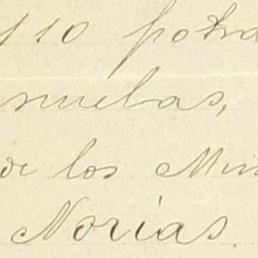 110 potra
muebas,
de los Min
Norias.